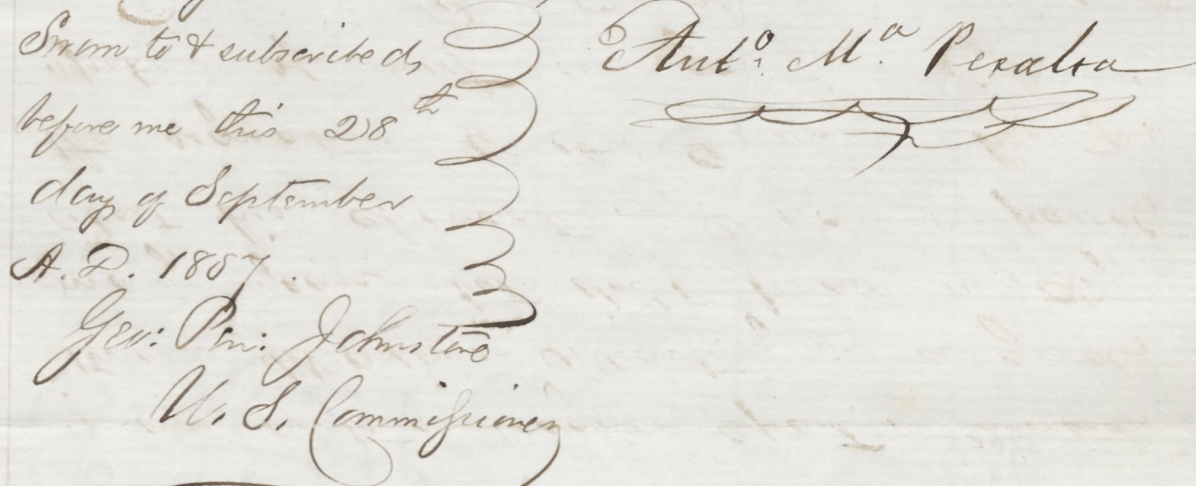 Sworn to & subscribed
before me this 28th
day of September
A. D. 1857.
Geo: Pen: Johnston
U. S. Commissioner
Anto. Ma. Peralta